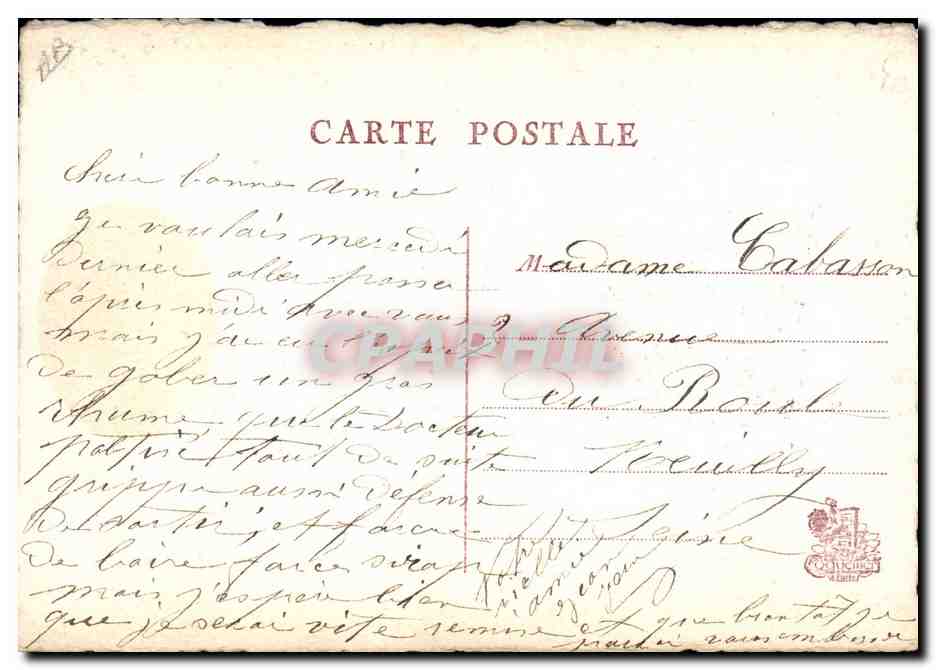 CARTE POSTALE
Chère bonne Amie
Je voulais mercredi
Dernier aller passer
l'après midi avec vous
mais j'ai eu
De gober un gros
rhume que le Docteur
tout de suite
grippe aussi défense
De sortir et force
De boire force sirop
mais j'espère bien
que je serai vite remise et que bientôt je
vous
Votre
vieille
amie
Madame Cabasson
9 Avenue
Du Roule
Neuilly
Seine
CPAPHIL